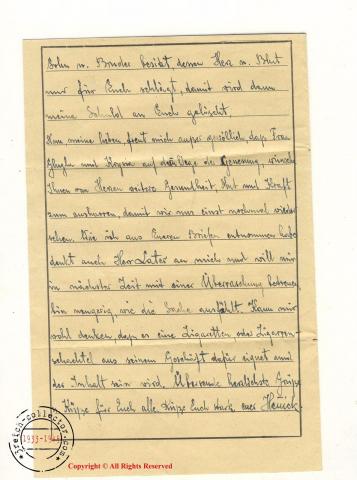 Sohn u. Bruder besitzt, dessen Herz u. Blut
nur für Euch schlägt, damit wird dann
meine Schuld an Euch gelöscht.
Nun meine lieben, freut mich außer gewöhnlich, daß Frau
und auf dem Wege der Genesung, wünsche
Ihnen von Herzen weitere Gesundheit, Mut und Kraft
zum ausharren, damit wir uns einst nochmal wieder
sehen. Wie ich aus Eueren Briefen entnommen habe
denkt auch Herr Later an mich und will mir
in nächster Zeit mit einer Überraschung
bin neugierig, wie die Sache ausfällt. Kann mir
wohl denken, dass es eine Zigaretten oder Zigarren-
schachtel aus seinem Geschäft dafür eignet und
der Inhalt sein wird. Übersende herzlichste Grüße
Küsse für Euch alle. Küsse Euch stark, euer
threich-collector.com
1933-1945
Copyright © All Rights Reserved